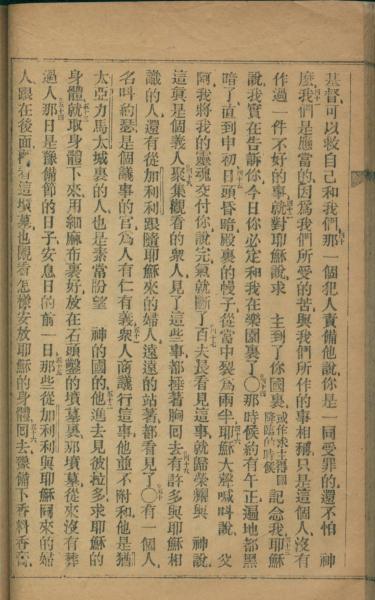 基督可以救自己和我們那一個犯人責備他說你是一同受罪的還不怕　神
麼我們是應當的因爲我們所受的苦與我們所作的事相稱只是這個人沒有
作過一件不好的事就對耶穌說求　主到了你國裏或作求主得國降臨的時候記念我耶穌
說我實在告訴你今日你必定和我在樂園裏了〇那時候約有午正遍地都黑
暗了直到申初日頭昏暗殿裏的幔子從當中裂爲兩半耶穌大聲喊呌說　父
阿我將我的靈魂交付你說完氣就斷了百夫長看見這事就歸榮耀與　神說
這眞是個義人聚集觀看的衆人見了這些事都搥著胸回去有許多與耶穌相
識的人還有從加利利跟隨耶穌來的婦人遠遠的站著都看見了〇有一個人
名呌約瑟是個議事的官爲人有仁有義衆人商議行這事他並不附和他是猶
太亞力馬太城裏的人也是素常盼望　神的國的他進去見彼拉多求耶穌的
身體就取身體下來用細麻布裹好放在石頭鑿的墳墓裏那墳墓從來沒有葬
過人那日是豫備節的日子安息日的前一日那些從加利利與耶穌同來的婦
人跟在後面看這墳墓也觀看怎樣安放耶穌的身體回去豫備下香料香膏